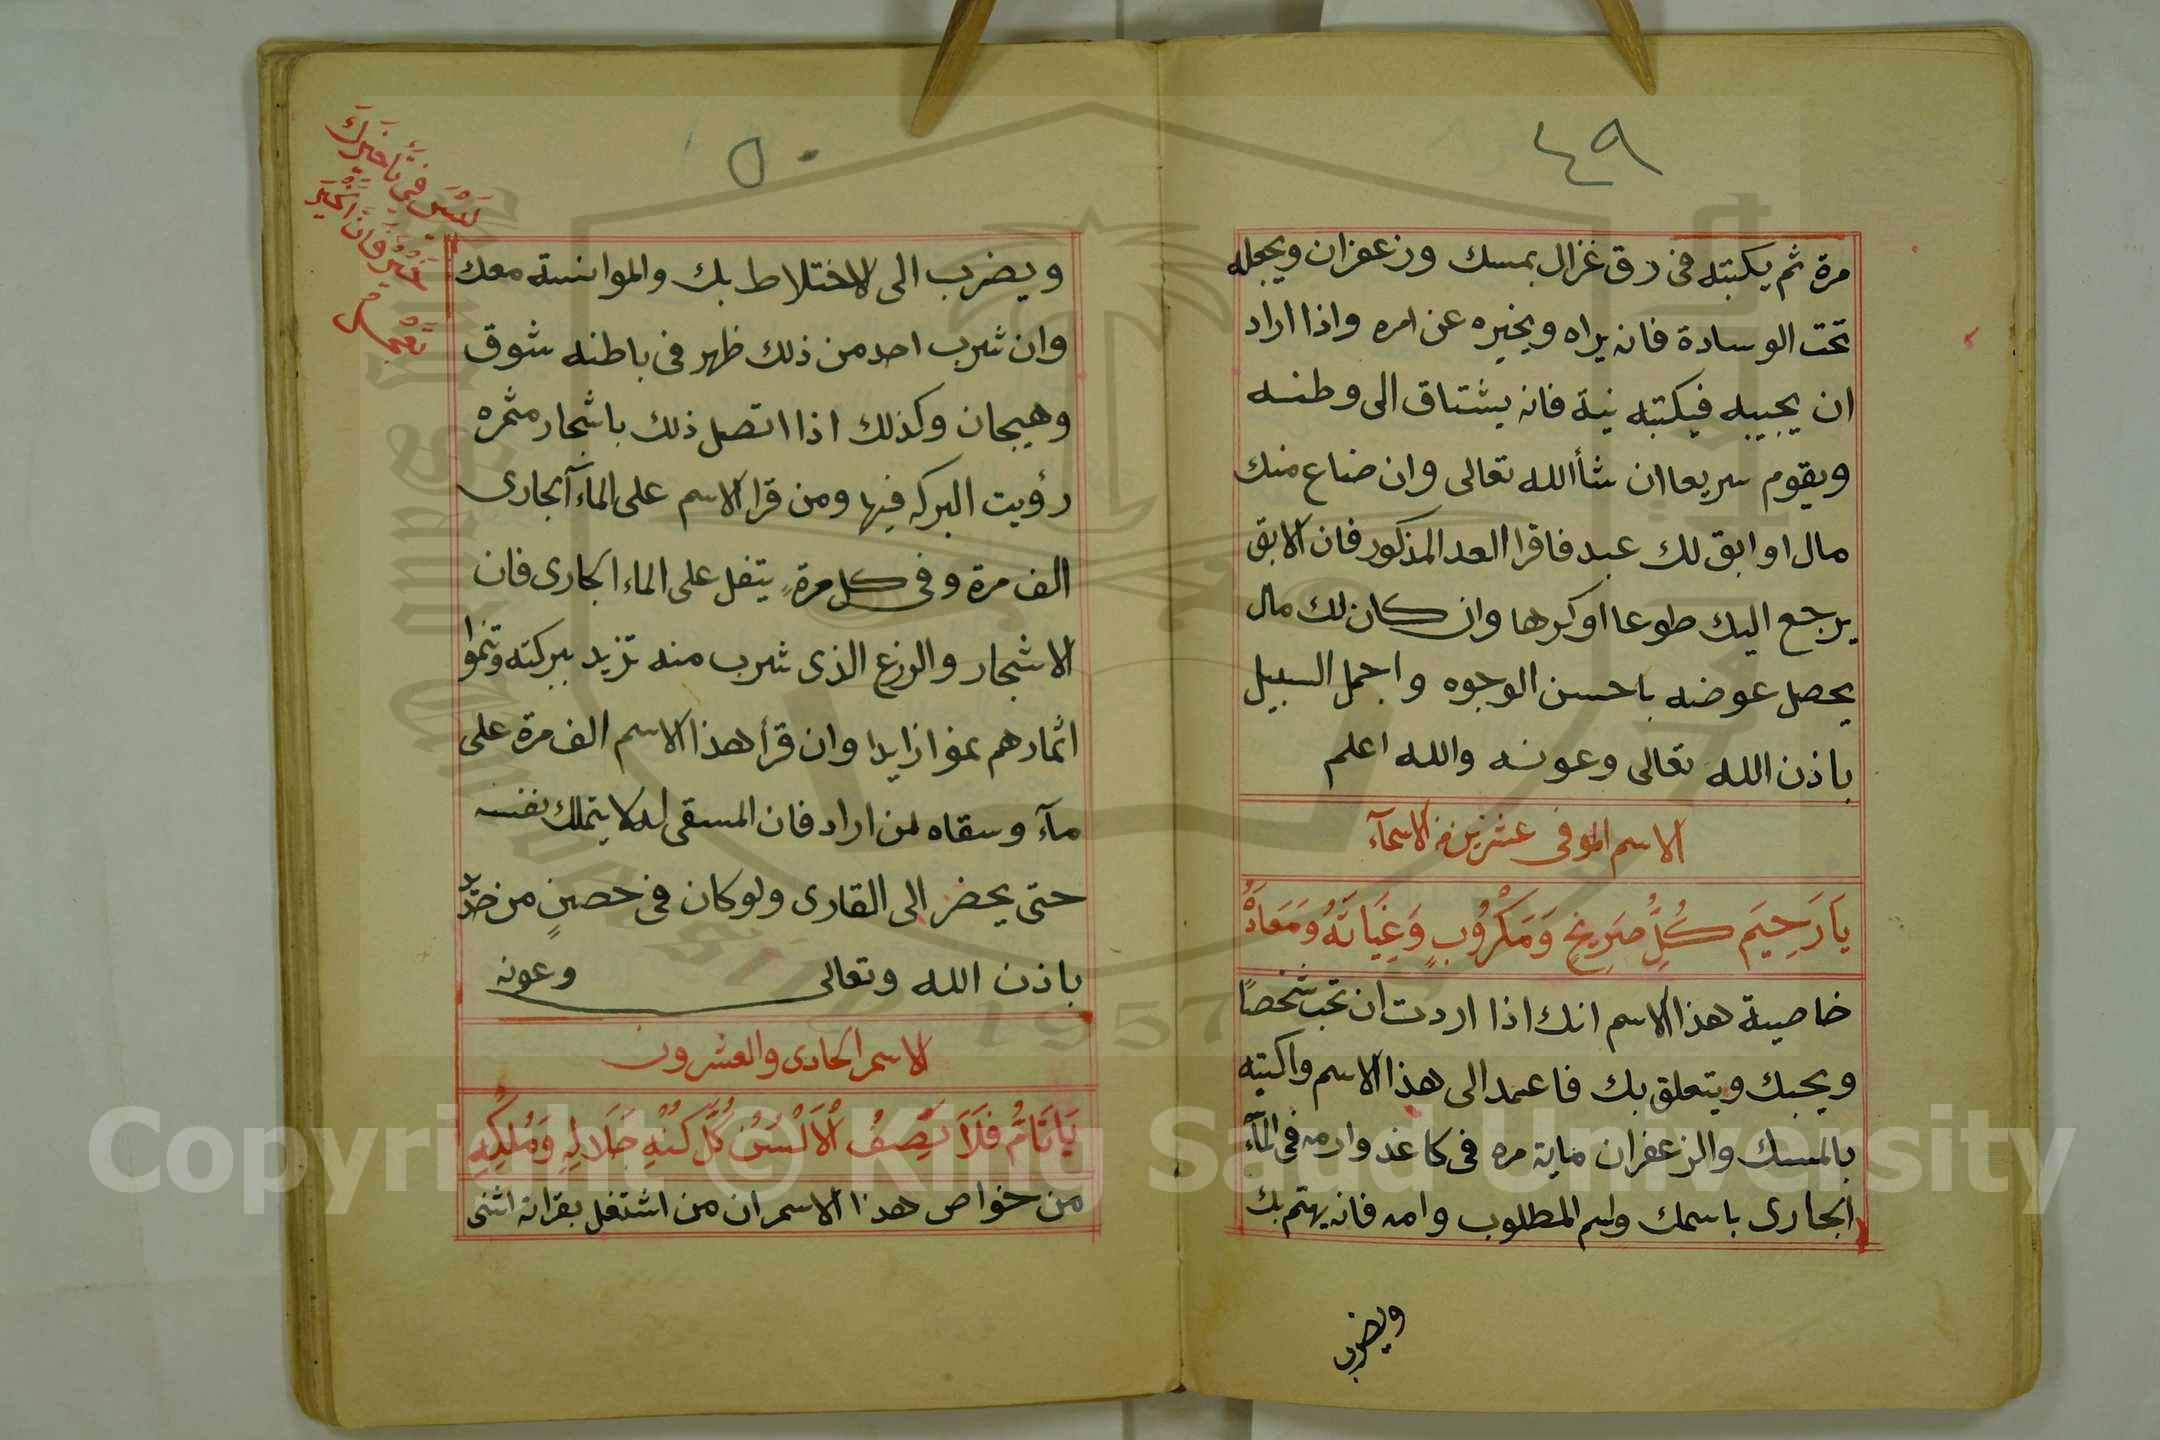 ٤٩
مرة ثم يكتبته فى رق غزال بمسك وزعفران ويجعله
تحت الوسادة فانه يراه ويخبره عن امره واذا اراد
ان يجيبه فيكتبته نية فانه يشتاق الى وطنه
ويقوم سريعا ان شأالله تعالى وان ضاع منك
مال او ابق لك عبد فاقرا العد المذكور فان الابق
يرجع اليك طوعا اوكرها وان كان لك مال
يحصل عوضه باحسن الوجوه واجمل السبيل
باذن الله تعالى وعونه والله اعلم
الاسم الموفى عشرين من الاسمآء
يَا رَحِيَم كُلِّ صَرِيخٍ وَمَكْرُوُبٍ وَغِيَاثَهُ وَمَعَاذَهُ
خاصية هذا الاسم انك اذا اردت ان تحب شخصًا
ويحبك ويتعلق بك فاعمد الى هذا الاسم واكتبه
بالمسك والزعفران ماية مره فى كاغذ وارمه فى المآء
الجارى باسمك واسم المطلوب وامه فانه يهتم بك
ويضرب
٥٠
لَيْسَ فِي تَأخيرِكَ
خَيْرُ فَانَّ الخَيْرَ
تعْجَل
ويضرب الى الاختلاط بك والموانسة معك
وان شرب احد من ذلك ظهر فى باطنه شوق
وهيجان وكذلك اذا اتصل ذلك باشجار مثمره
رؤيت البركه فيها ومن قرا الاسم على المآء آلجارى
الف مرة وفى كل مرة يتفل على الماء الجارى فان
الاشجار والزرع الذى شرب منه تزيد ببركته وتنموا
اثمارهم نموا زايدا وان قرأ هذا الاسم الف مرة على
مآء وسقاه لمن اراد فان المسقى له لا يتملك نفسه
حتى يحضر الى القارى ولو كان فى حصينٍ من
باذن الله وتعالى وعونه
الاسم الحادى والعشرون
يَا تَامُّ فَلَا تَصِفُ الْاَلْسَنُ كُلَّ كُنْهِ جَلَالِهِ وَمُلْكِهِ
من خواص هذا الاسم ان من اشتغل بقراته اثنى
Copyright © King Saud University
King Saud University
1957